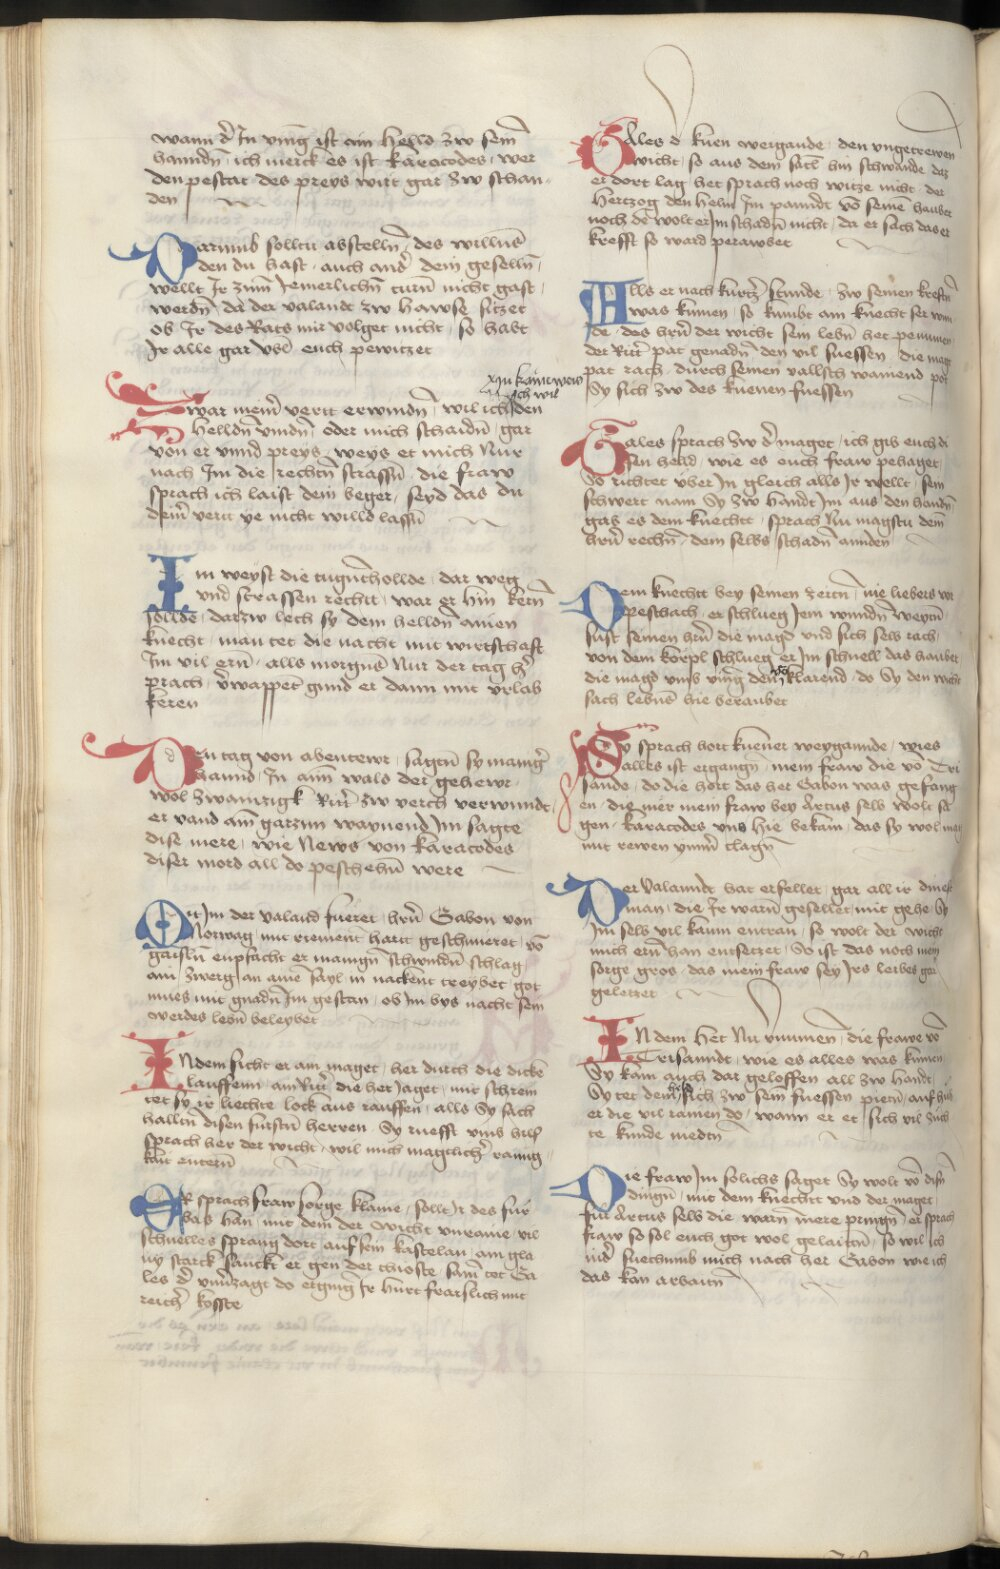 wann d͛ In vmͤg ist ain Helld zw sein̄
hanndn̄ · ich merck es ist karacodes · wer
den pestat des preys wirt gar zw schan-
den
Darumb solltu abstelln̄ · des willnns̄
den du hast · auch and͛ dein geselln̄ ·
wellt Ir zum̄ Jemerlichn̄ turn̄ nicht gast ·
werdn̄ · da der valandt zw hawse sitzet
ob Ir des Rats mir volget nicht · so habt
Ir alle gar vbl̄ euch pewitzet
Zwar mein̄ vert erwindn̄ · wil ich den
Helldn̄ vindn̄ · oder mich schaidn̄ · gar
von er vnnd preys · weys et mich Nur
nach Im die rechtn̄ strassn̄ · die fraw
sprach ich laist dein beger · seyd das du
dein̄ vert ye nicht willd lassn̄
Im weyst die tugnthollde · dar weg
vnd strassen rechtt · war er hin kern̄
sollde · darzw lech sy dem helldn̄ ainen
knecht · man tet die nacht mit wirtschaft
Im vil ern̄ · alls morgns̄ Nur der tag h͛
prach · v͛wappet gund er dann mit vrlab
keren
Den tag von abentewr · sagtn̄ sy manig͛
hannd · In aim̄ wals der gehewr ·
wol zwaintzigk Rit͛ zw verch verwundt ·
er vand ain̄ garzun waynend Im sagte
dise mere · wie News von karacodes
diser mord all do peschehn̄ were
Mit Im der valand fueret · hrn̄ Gabon von
Norwag · mit riement hart geschnueret · vō
gaisln̄ enpfacht er manign̄ schwindn̄ schlag
ain zwerg an aine sayl in nackent treybet · got
mues mit gnadn̄ Im gestan · ob Im bys nacht sein
werdes lebn̄ beleybet
In dem sicht er ain maget · her durch die dickē
lauffenn · ain Rit͛ die het Jaget · mit schreiñ
tet sy ir liechte lock aus rauffen · alls Sy sach
halltn̄ disen furstn̄ herren · Sy ruefft vmb hilf
sprach her der wicht · wil mich magtlich͛ rainig-
kait entern̄
Er sprach fraw sorge klaine · sollt Ir des fur
bas han · mit dem der wicht vnraine · vil
schnelles sprang dort auf sein kastelan · ain gla
uy starck sanckt er gen der thioste · sam̄ tet Ga
les d͛ vnuerzagt do erging Ir hurt fraislich mit
reich͛ kosste
Gales d͛ kuen weigande · den vngetrewen
wicht · so aus dem satl hin schwande · daz
er dort lag het sprach noch witze nicht · der
Hertzog den helm Im panndt vō seinē haubet
noch dē wolt er Im schadn̄ nicht · da er sach das er
krefft so ward perawbet
Alls er nach kurtz͛ stunde · zw seinen kreftn̄
was kumen · so kumbt ain knecht ser wun
de · des hrn̄ der wicht sein lebn̄ het penumen
der Rit͛ pat genadn̄ den vil suessen · die magt
pat rach · durch seinen vallsch wainend pot
Sy sich zw des kuenen fuessen
Gales sprach zw d͛ maget · ich gib euch di
sen held · wie es euch fraw pehaget ·
So richtet vber In gleich alls Ir wellt · sein
schwert nam Sy zw handt Im aus den handn̄
gab es dem knechtt · sprach Nu magstu dein̄
hrn̄ rechn̄ · dem selbs schadn̄ annden
Dem knechtt bey seinen zeitn̄ · nie liebers wer
peschach · er schlueg Jem wundn̄ weytn̄
sust seinen hrn̄ die magd vnd sich selb rach ·
von dem korpl schlueg er Im schnell das haubet
die magd vmb ving den klarend · do Sy den wicht
sach lebns̄ hie beraubet
Sy sprach hort kuener weygannde · wie s
alles ist ergangn̄ · mein fraw die vō Tri
sande · do die hort das her Gabon was gefang
en · die mer mein fraw bey Artus selb wolt sa
gen · karacodes vns hie bekam · das sy wol mag
mit rewen ymm̄er clagn̄
Der valanndt hat erfellet · gar all ir dinest
man · die Ir warn̄ gesellet · mit gehe Sy
Im selb vil kaum entran · so wolt der wicht
mich ern̄ han entsetzet · So ist das noch mein
sorge gros · das mein fraw sey Irs leibes gar
geletzet
In dem Het Nu vnumen · die frawe vō
Trisanndt · wie es alles was kumen
Sy kam auch dar geloffen all zw handt ·
Sy tet dem held sich zw sein̄ fuessen pietn̄ · auf hub
er die vil rainen do · wann er et sich vil zuch
te kunde nietn̄
Die fraw Im solichs saget Sy wolt vō disn̄
dingn̄ · mit dem knechtt vnd der maget ·
fur Artus selb die warn̄ mere pringn̄ · er sprach
fraw so sol euch got wol gelaittn̄ · so wil ich
nid͛ suechunnd mich nach her Gabon wie ich
das kan arbaitn̄